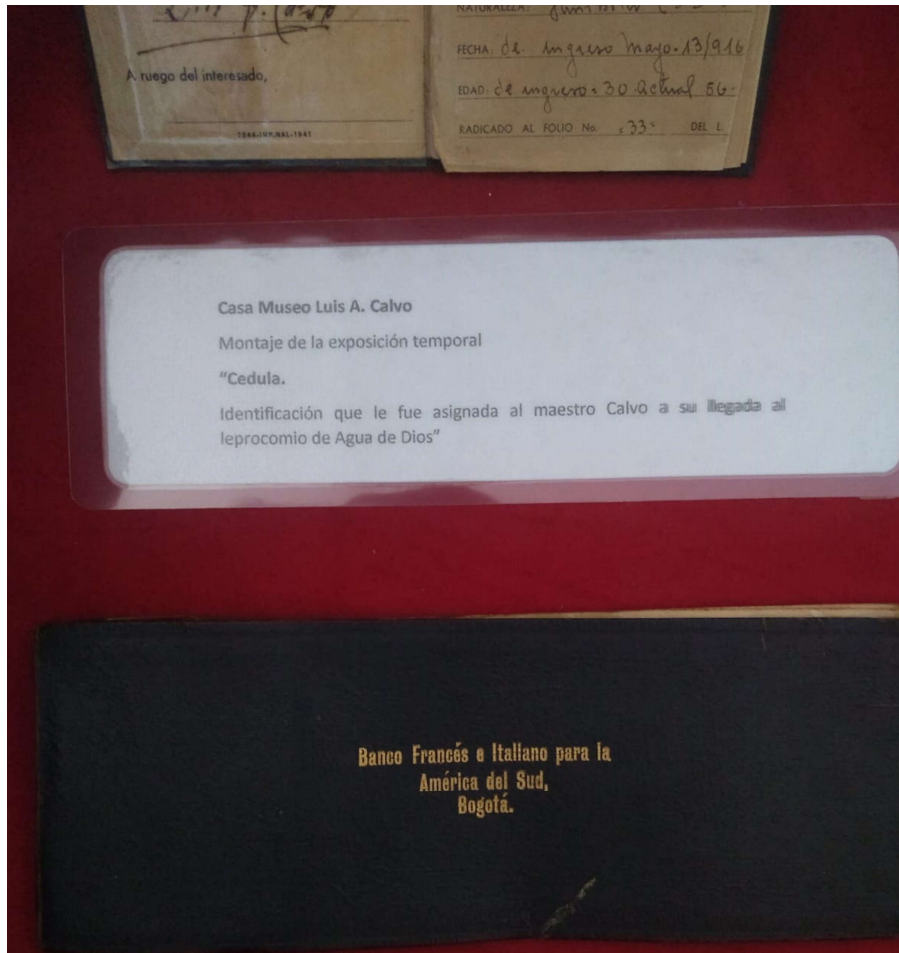 A ruego del interesado,
NATURALEZA:
FECHA: de ingreso Mayo-13/916
EDAD: de ingreso: 30 Actual 56-
RADICADO AL FOLIO No. 33 DEL L.
Casa Museo Luis A. Calvo
Montaje de la exposición temporal
“Cedula.
Identificación que le fue asignada al maestro Calvo a su llegada al
leprocomio de Agua de Dios”
Banco Francés e Italiano para la
América del Sud,
Bogotá.